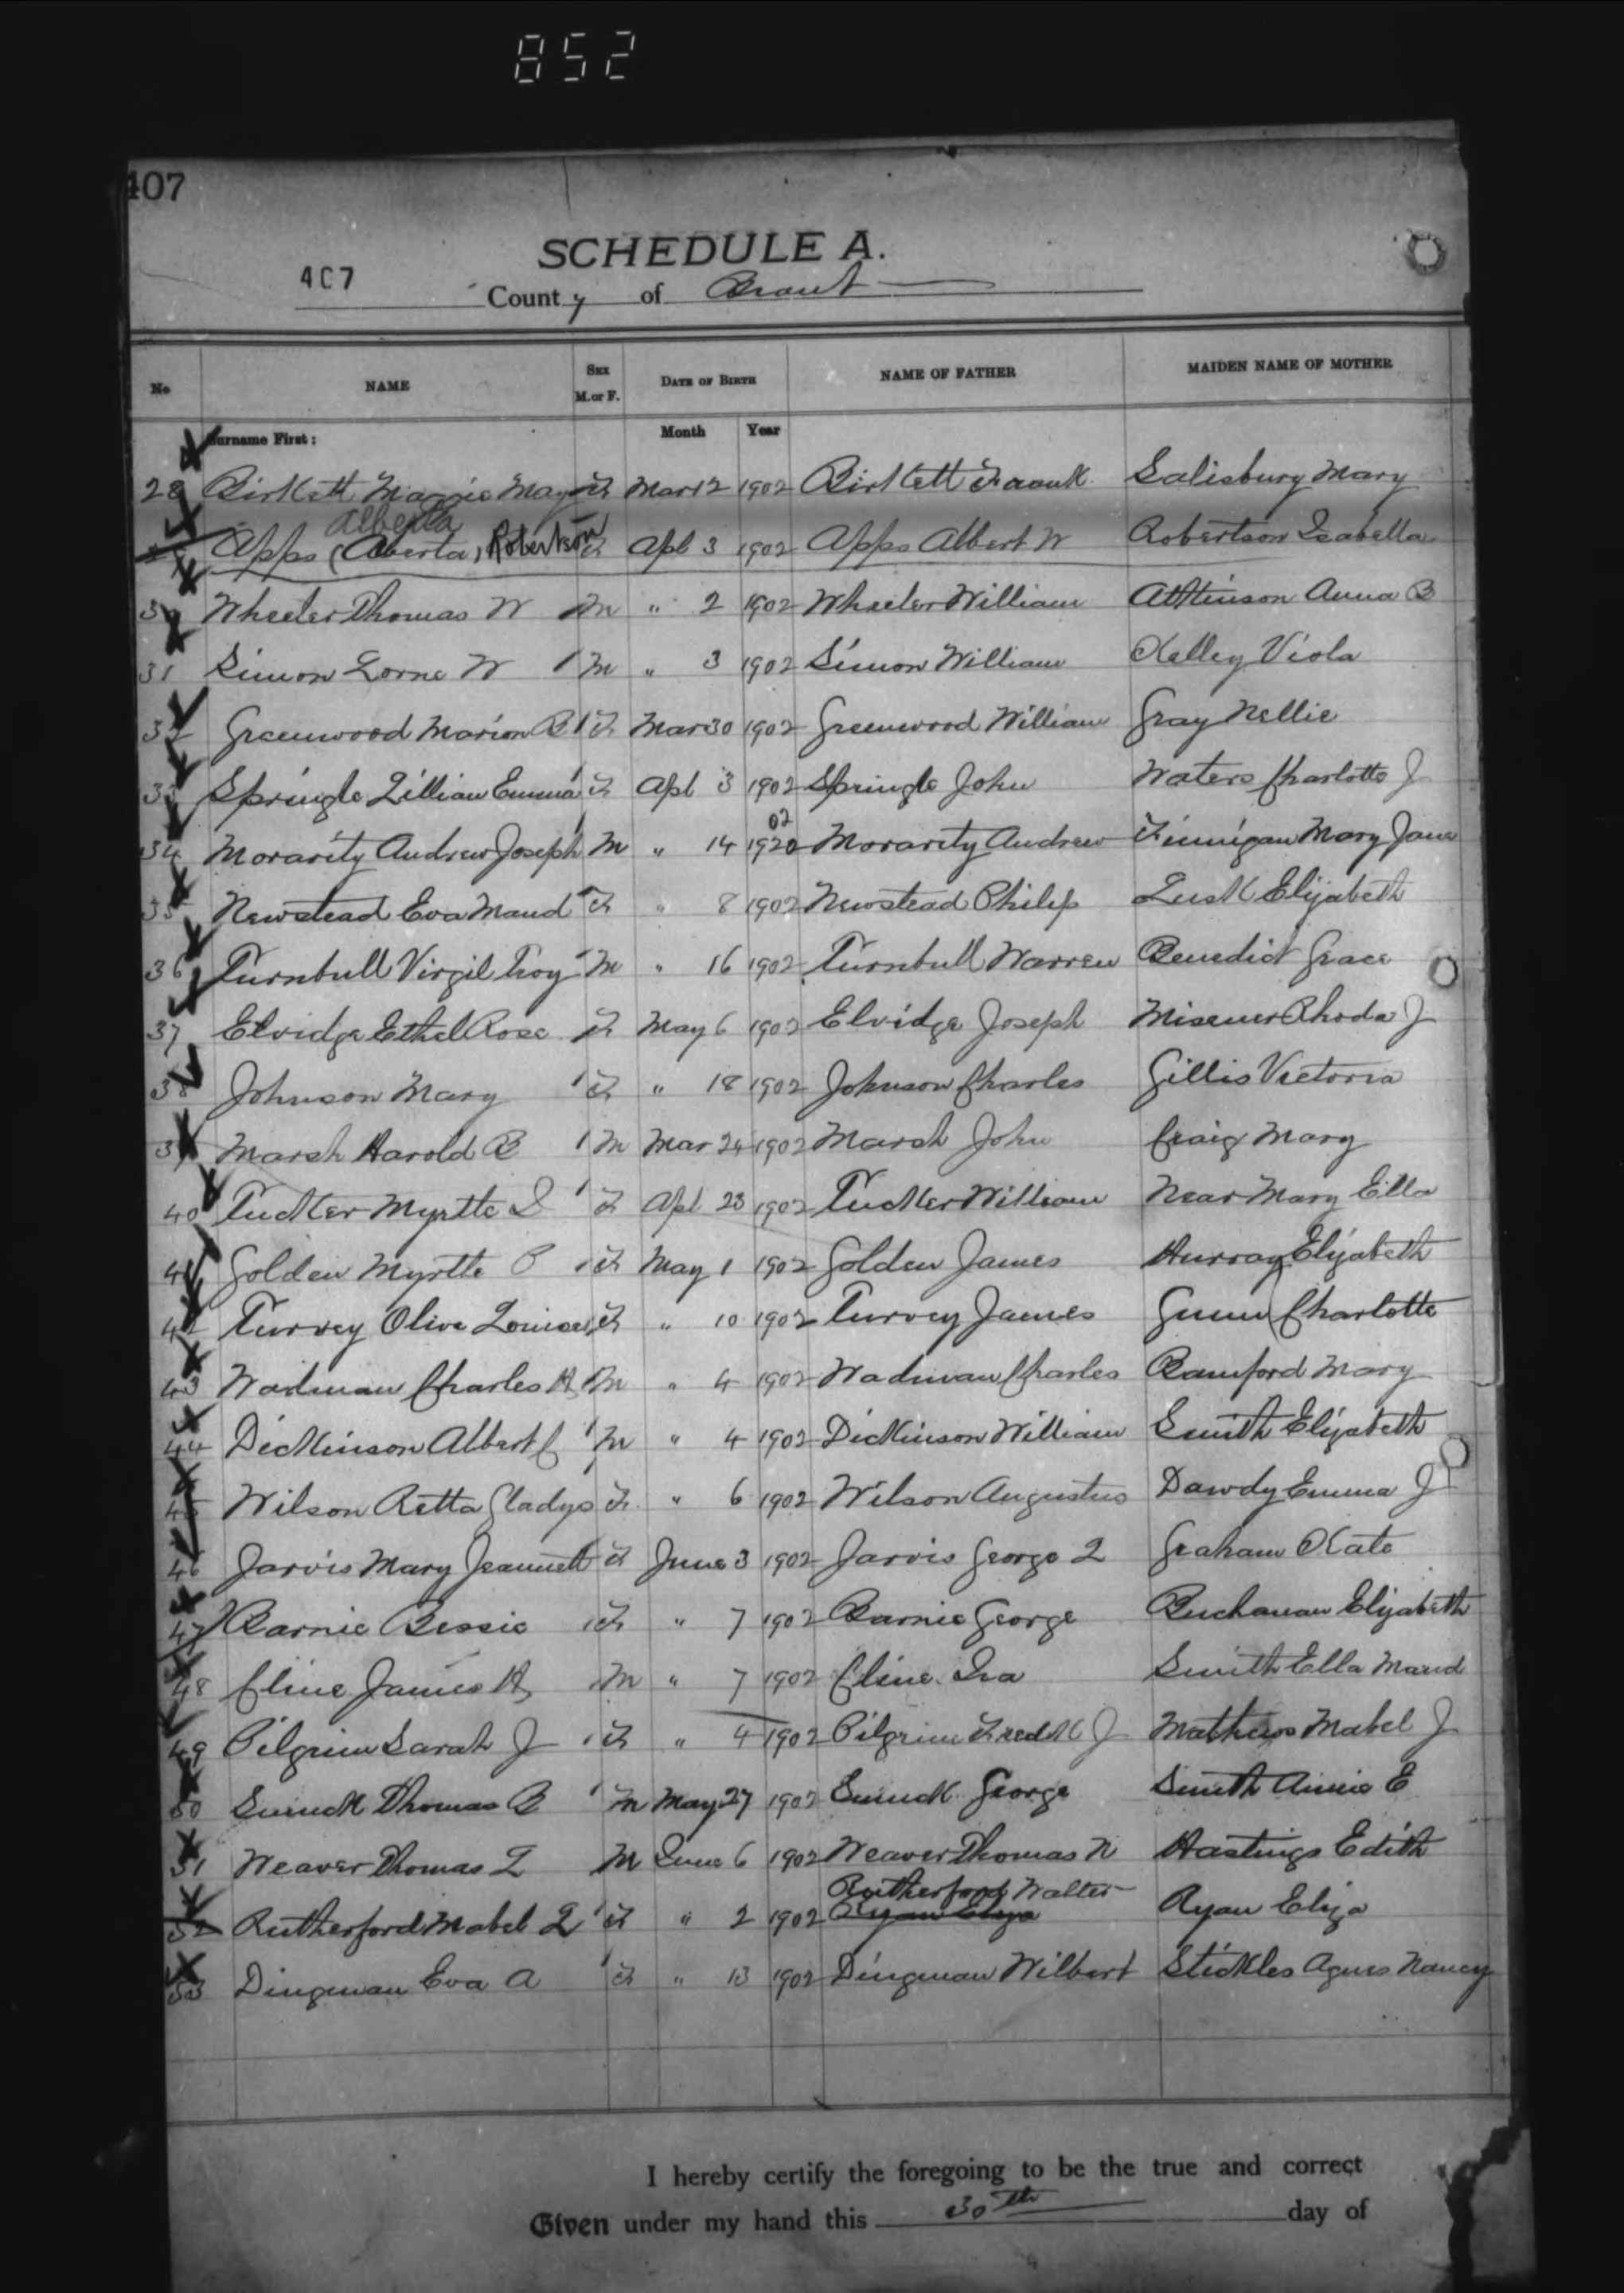 852
407
SCHEDULE A.
407
County of Brant
No NAME Sex M. or F. Date of Birth NAME OF FATHER MAIDEN NAME OF MOTHER
Surname First: Month Year
28 Birkett Maggie May F Mar 12 1902 Birkett Frank Salisbury Mary
Alberta
Apps (Aberta) Robertson F Apl 3 1902 Apps Albert W Robertson Isabella
30 Wheeler Thomas W M " 2 1902 Wheeler William Atkinson Anna B
31 Simon Lorne W M " 3 1902 Simon William Kelley Viola
32 Greenwood Marion B F Mar 30 1902 Greenwood William Gray Nellie
33 Springle Lillian Emma F Apl 3 1902 Springle John Waters Charlotte J
02
34 Morarity Andrew Joseph M " 14 1920 Morarity Andrew Finnigan Mary Jane
35 Newstead Eva Maud F " 8 1902 Newstead Philip Lusk Elizabeth
36 Turnbull Virgil Troy M " 16 1902 Turnbull Warren Benedict Grace
37 Elvidge Ethel Rose F May 6 1902 Elvidge Joseph Misener Rhoda J
38 Johnson Mary F " 18 1902 Johnson Charles Gillis Victoria
39 Marsh Harold B M Mar 24 1902 Marsh John Craig Mary
40 Tucker Myrtle F Apl 23 1902 Tucker William Near Mary Ella
41 Golden Myrtle F May 1 1902 Golden James Murray Elizabeth
42 Turvey Olive Louise F " 10 1902 Turvey James Gunn Charlotte
43 Wadman Charles H M " 4 1902 Wadman Charles Bamford Mary
44 Dickinson Albert C M " 4 1902 Dickinson William Smith Elizabeth
45 Wilson Retta Gladys F " 6 1902 Wilson Augustus Dawdy Emma J
46 Jarvis Mary Jeannett F June 3 1902 Jarvis George L Graham Kate
47 Barnie Bessie F " 7 1902 Barnie George Buchanan Elizabeth
48 Cline James H M " 7 1902 Cline Ira Smith Ella Maud
49 Pilgrim Sarah J F " 4 1902 Pilgrim Fredk J Mathews Mabel J
50 Thomas B M May 27 1902 George Smith Annie E
51 Weaver Thomas L M June 6 1902 Weaver Thomas N Hastings Edith
Rutherford Walter
52 Rutherford Mabel L F " 2 1902 Ryan Eliza Ryan Eliza
53 Dingman Eva A F " 13 1902 Dingman Wilbert Stickles Agnes Nancy
I hereby certify the foregoing to be the true and correct
Given under my hand this 30th day of